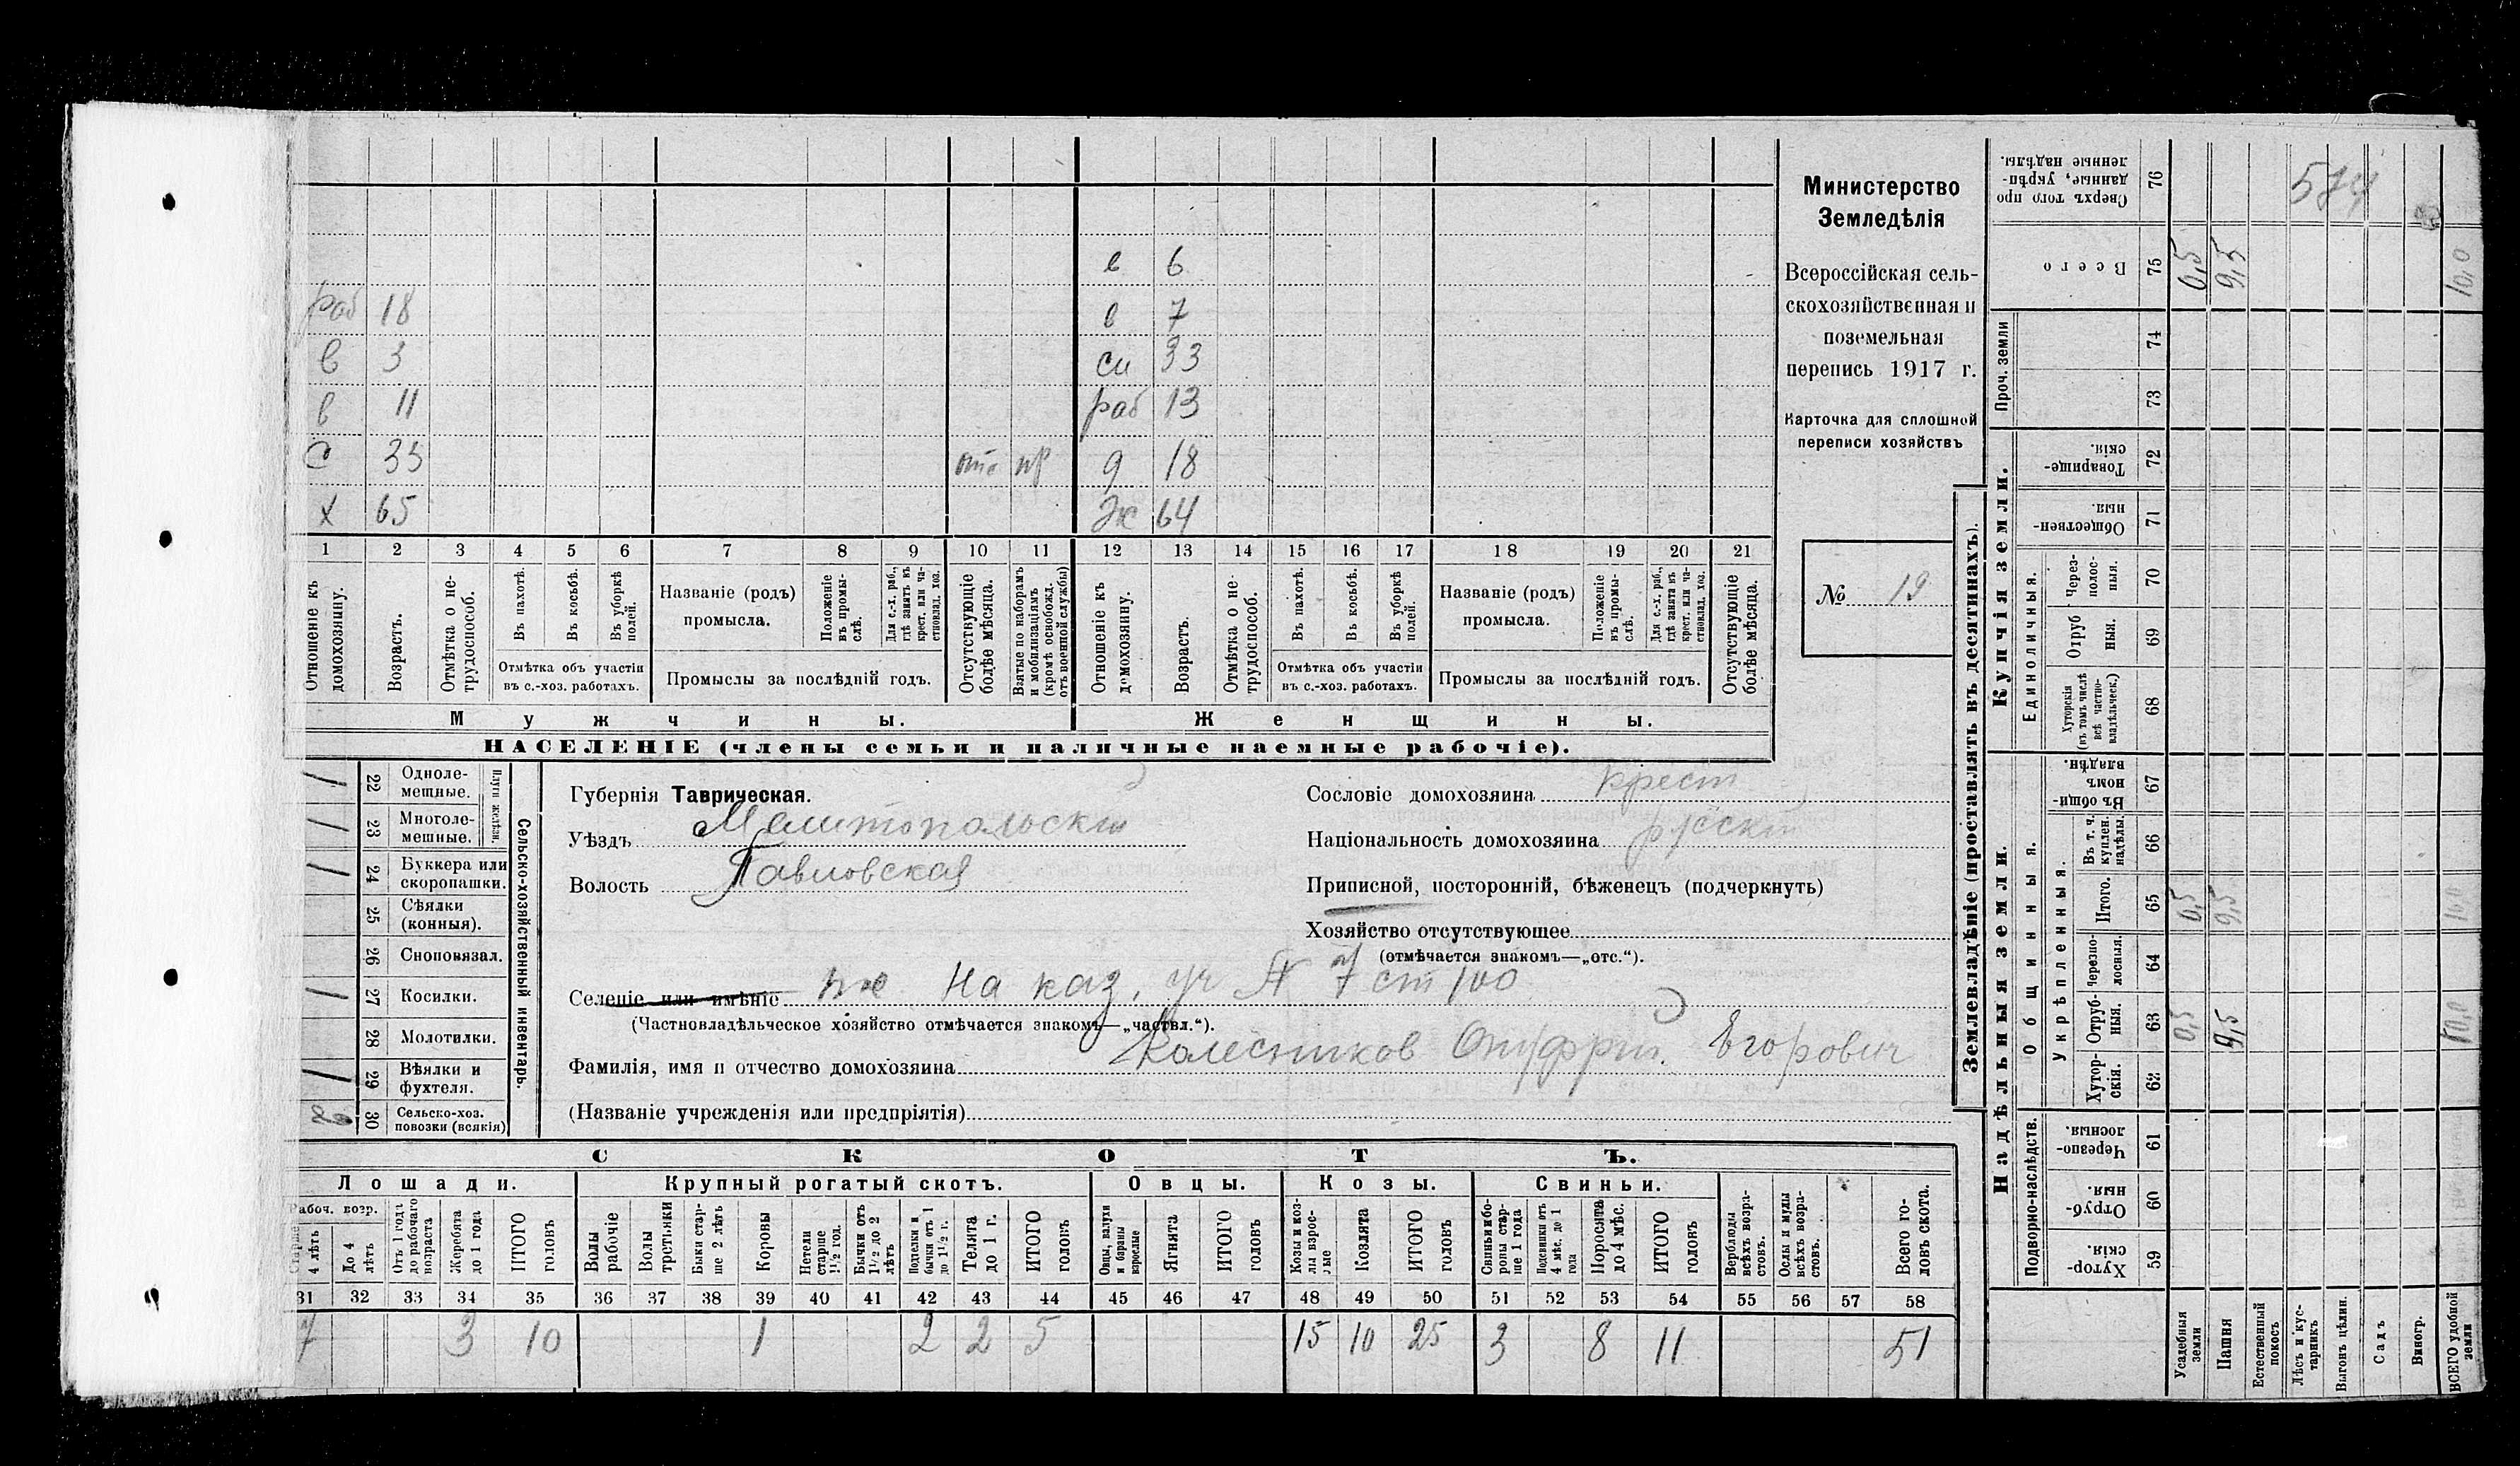 Министерство
Земледѣлія
Всероссійская сель-
скохозяйственная и
поземельная
перепись 1917 г.
Карточка для сплошной
переписи хозяйствъ
№ 19
в 6
раб 18 в 7
в 3 си 33
в 11 раб 13
с 35 отс пр д 18
х 65 Ж 64
1 2 3 4 5 6 7 8 9 10 11 12 13 14 15 16 17 18 19 20 21
Отношеніе къ домохозяину.
Возрастъ.
Отмѣтка о не-трудоспособ.
Въ пахотѣ.
Въ косьбѣ.
Въ уборкѣ полей.
Отмѣтка объ участіи
въ с.-хоз. работахъ.
Названіе (родъ)
промысла.
Положеніе въ промы-слѣ.
Для с.-х. раб., гдѣ занятъ въ крест. или ча-стновлад. хоз.
Промыслы за послѣдній годъ.
Отсутствующіе болѣе мѣсяца.
Взятые по наборамъ и мобилизаціямъ (кромѣ освобожд. отъ военной службы)
Отношеніе къ домохозяину.
Возрастъ.
Отмѣтка о не-трудоспособ.
Въ пахотѣ.
Въ косьбѣ.
Въ уборкѣ полей.
Отмѣтка объ участіи
въ с.-хоз. работахъ.
Названіе (родъ)
промысла.
Положеніе въ промы-слѣ.
Для с.-х. раб., гдѣ занята въ крест. или ча-стновлад. хоз.
Промыслы за послѣдній годъ.
Отсутствующіе болѣе мѣсяца.
Мужчины. Женщины.
НАСЕЛЕНІЕ (члены семьи и наличные наемные рабочіе).
Сельско-хозяйственный инвентарь.
Плуги желѣзн.
/ 22 Одноле-мешные.
/ 23 Многоле-мешные.
/ 24 Буккера или скоропашки.
25 Сѣялки (конныя).
26 Сноповязал.
/ 27 Косилки.
28 Молотилки.
/ 29 Вѣялки и фухтеля.
30 Сельско-хоз. повозки (всякія)
Губернія Таврическая.
Уѣздъ Мелитопольский
Волость Павловская
Сословіе домохозяина крест
Національность домохозяина русский
Приписной, посторонній, бѣженецъ (подчеркнуть)
Хозяйство отсутствующее
(отмѣчается знакомъ—„отс.“).
Селеніе или имѣніе На каз. уч № 7 ст 100
(Частновладѣльческое хозяйство отмѣчается знакомъ—„частвл.“).
Фамилія, имя и отчество домохозяина Колесников Онуфрий Егорович
(Названіе учрежденія или предпріятія)
СКОТЪ.
Лошади. Крупный рогатый скотъ. Овцы. Козы. Свиньи.
Рабоч. возр.
Старше 4 лѣтъ
До 4 лѣтъ
Отъ 1 года до рабочаго возраста
Жеребята до 1 года
ИТОГО головъ
Волы рабочіе
Волы третьяки
Быки стар-ше 2 лѣтъ
Коровы
Нетели старше 1½ год.
Бычки отъ 1½ до 2 лѣтъ
Подтелки и бычки отъ 1 до 1½ г.
Телята до 1 г.
ИТОГО головъ
Овцы, валухи и бараны взрослые
Ягнята
ИТОГО головъ
Козы и коз-лы взрос-лые
Козлята
ИТОГО головъ
Свиньи и бо-ровы стар-ше 1 года
Подсвинки отъ 4 мѣс. до 1 года
Поросята до 4 мѣс.
ИТОГО головъ
Верблюды всѣхъ возра-стовъ.
Ослы и мулы всѣхъ возра-стовъ.
Всего го-ловъ скота.
31 32 33 34 35 36 37 38 39 40 41 42 43 44 45 46 47 48 49 50 51 52 53 54 55 56 57 58
7 3 10 1 2 2 5 15 10 25 3 8 11 51
Землевладѣніе (проставлять въ десятинахъ).
Надѣльныя земли.
Купчія земли.
Проч. земли
Подворно-наслѣдств.
Общинныя.
Укрѣпленныя.
Единоличныя.
Сверхъ того про-данные, укрѣп-ленные надѣлы. 76 574
Всего 75 0,5 9,5 10,0
74
73
Товарище-скія. 72
Обществен-ныя. 71
Через-полос-ныя. 70
Отруб-ныя. 69
Хуторскія (въ томъ числѣ всѣ частно-владѣльческ.) 68
Въ общин-номъ владѣн. 67
Въ т. ч. куплен. надѣлы. 66
Итого. 65 0,5 9,5 10,0
Черезпо-лосныя. 64
Отруб-ныя. 63 0,5 9,5 10,0
Хутор-скія. 62
Черезпо-лосныя. 61
Отруб-ныя. 60
Хутор-скія. 59
Усадебныя земли
Пашня
Естественный покосъ
Лѣсъ и кус-тарникъ
Выгонъ цѣлин.
Садъ
Виногр.
ВСЕГО удобной земли